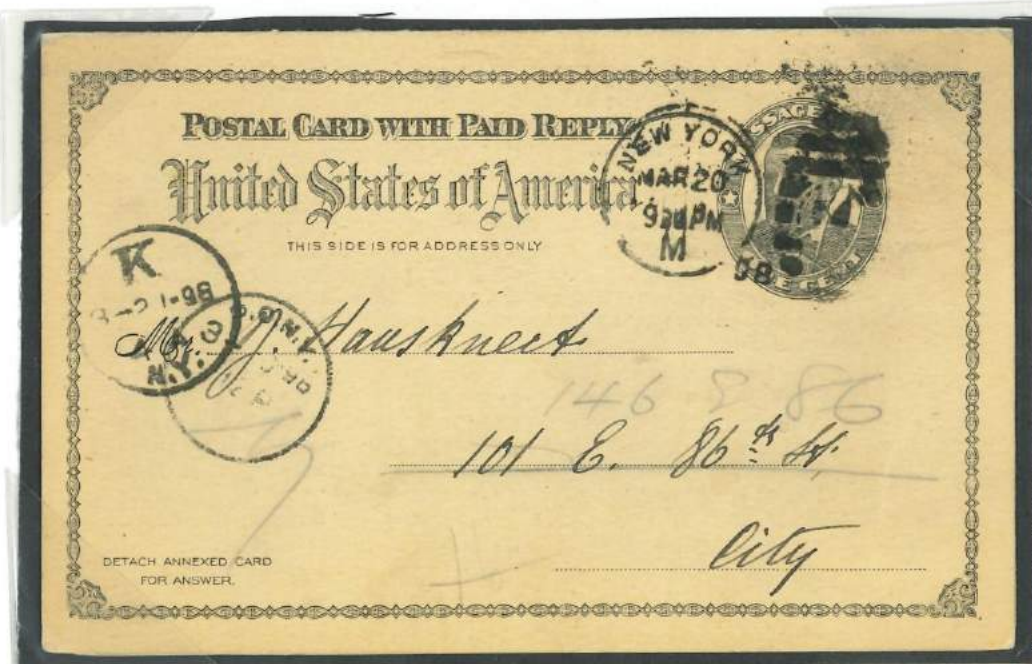 POSTAL CARD WITH PAID REPLY
United States of America
THIS SIDE IS FOR ADDRESS ONLY
NEW YORK
MAR 20
PM
M
98
K
-98
N.Y.
98
Mr. J. Hausknect
146 E 86
101 E. 86th St.
City
DETACH ANNEXED CARD
FOR ANSWER.